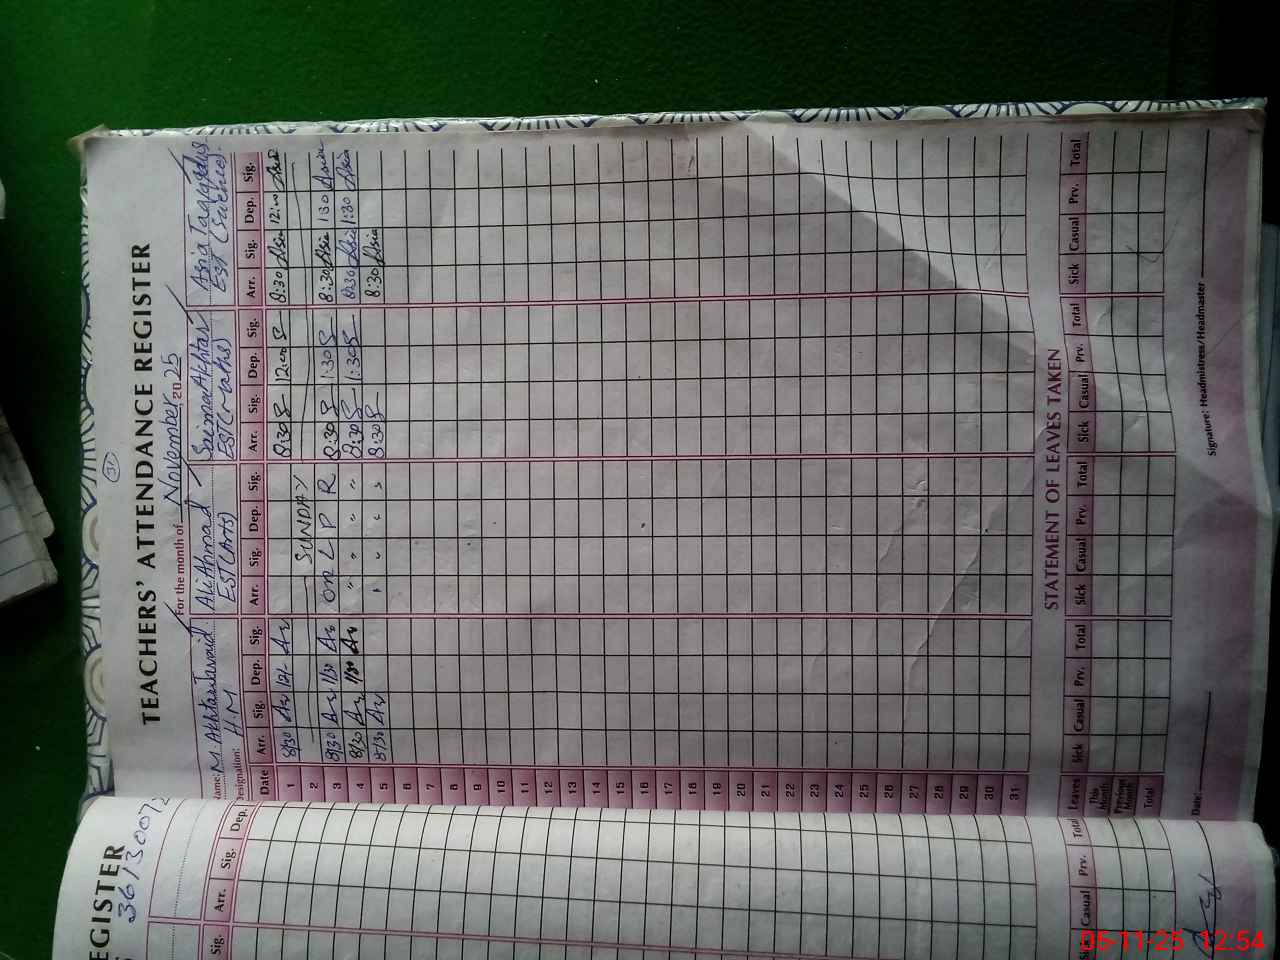 31
TEACHERS' ATTENDANCE REGISTER
For the month of November 2025
Name: M. Akhtar Javaid Ali Ahmad Saima Akhtar Asia Taqaddus
Designation: H.M EST (Arts) EST (Maths) EST (Science).
Date Arr. Sig. Dep. Sig. Arr. Sig. Dep. Sig. Arr. Sig. Dep. Sig. Arr. Sig. Dep. Sig.
1 8/30 12/- 8:30 12:00 8:30 Asia 12:00 Asia
2 SUNDAY
3 8/30 1/30 on L P R 8:30 1:30 8:30 Asia 1:30 Asia
4 8/30 1/30 " " " " 8:30 1:30 8:30 Asia 1:30 Asia
5 8/30 8:30 8:30 Asia
6
7
8
9
10
11
12
13
14
15
16
17
18
19
20
21
22
23
24
25
26
27
28
29
30
31
STATEMENT OF LEAVES TAKEN
Leaves Sick Casual Prv. Total Sick Casual Prv. Total Sick Casual Prv. Total Sick Casual Prv. Total
This Month
Previous Month
Total
Date: Signature: Headmistress/Headmaster
EGISTER
Arr. Sig. Dep.
Sig.
Casual Prv. Total
05-11-25 12:54